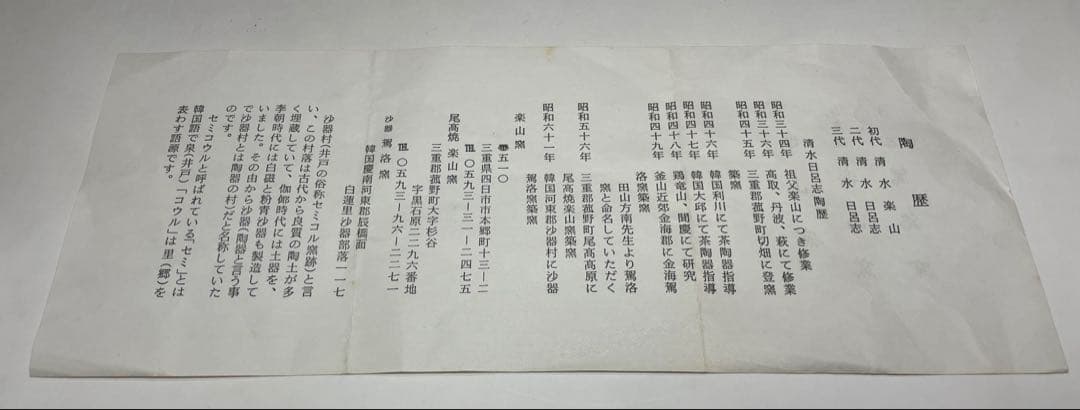 陶歴
初代 清水楽山
二代 清水日呂志
三代 清水日呂志
清水日呂志陶歴
昭和三十四年 祖父楽山につき修業
昭和三十六年 高取、丹波、萩にて修業
昭和四十五年 三重郡菰野町切畑に登窯
築窯
昭和四十六年 韓国利川にて茶陶器指導
昭和四十七年 韓国大邱にて茶陶器指導
昭和四十八年 鶏竜山、聞慶にて研究
昭和四十九年 釜山近郊金海郡に金海駕
洛窯築窯
田山方南先生より駕洛
窯と命名していただく
昭和五十六年 三重郡菰野町尾高高原に
尾高焼楽山窯築窯
昭和六十一年 韓国河東郡沙器村に沙器
駕洛窯築窯
楽山窯
〒五一〇
三重県四日市市本郷町十三ー二
℡〇五九三ー三一ー二四七五
尾高焼 楽山窯
三重郡菰野町大字杉谷
字黒石原二二九六番地
℡〇五九三ー九六ー二二七一
沙器 駕洛窯
韓国慶南河東郡辰橋面
白蓮里沙器部落一一七
沙器村(井戸の俗称セミコル窯跡)と言
い、この村落は古代から良質の陶土が多
く埋蔵していて、伽倻時代には土器を、
李朝時代には白磁と粉青沙器も製造して
いました。その由から沙器(陶器と言う事
で沙器村とは陶器の村)だと名称していた
のです。
セミコウルと呼ばれている「セミ」とは
韓国語で泉(井戸)「コウル」は里(郷)を
表わす語源です。